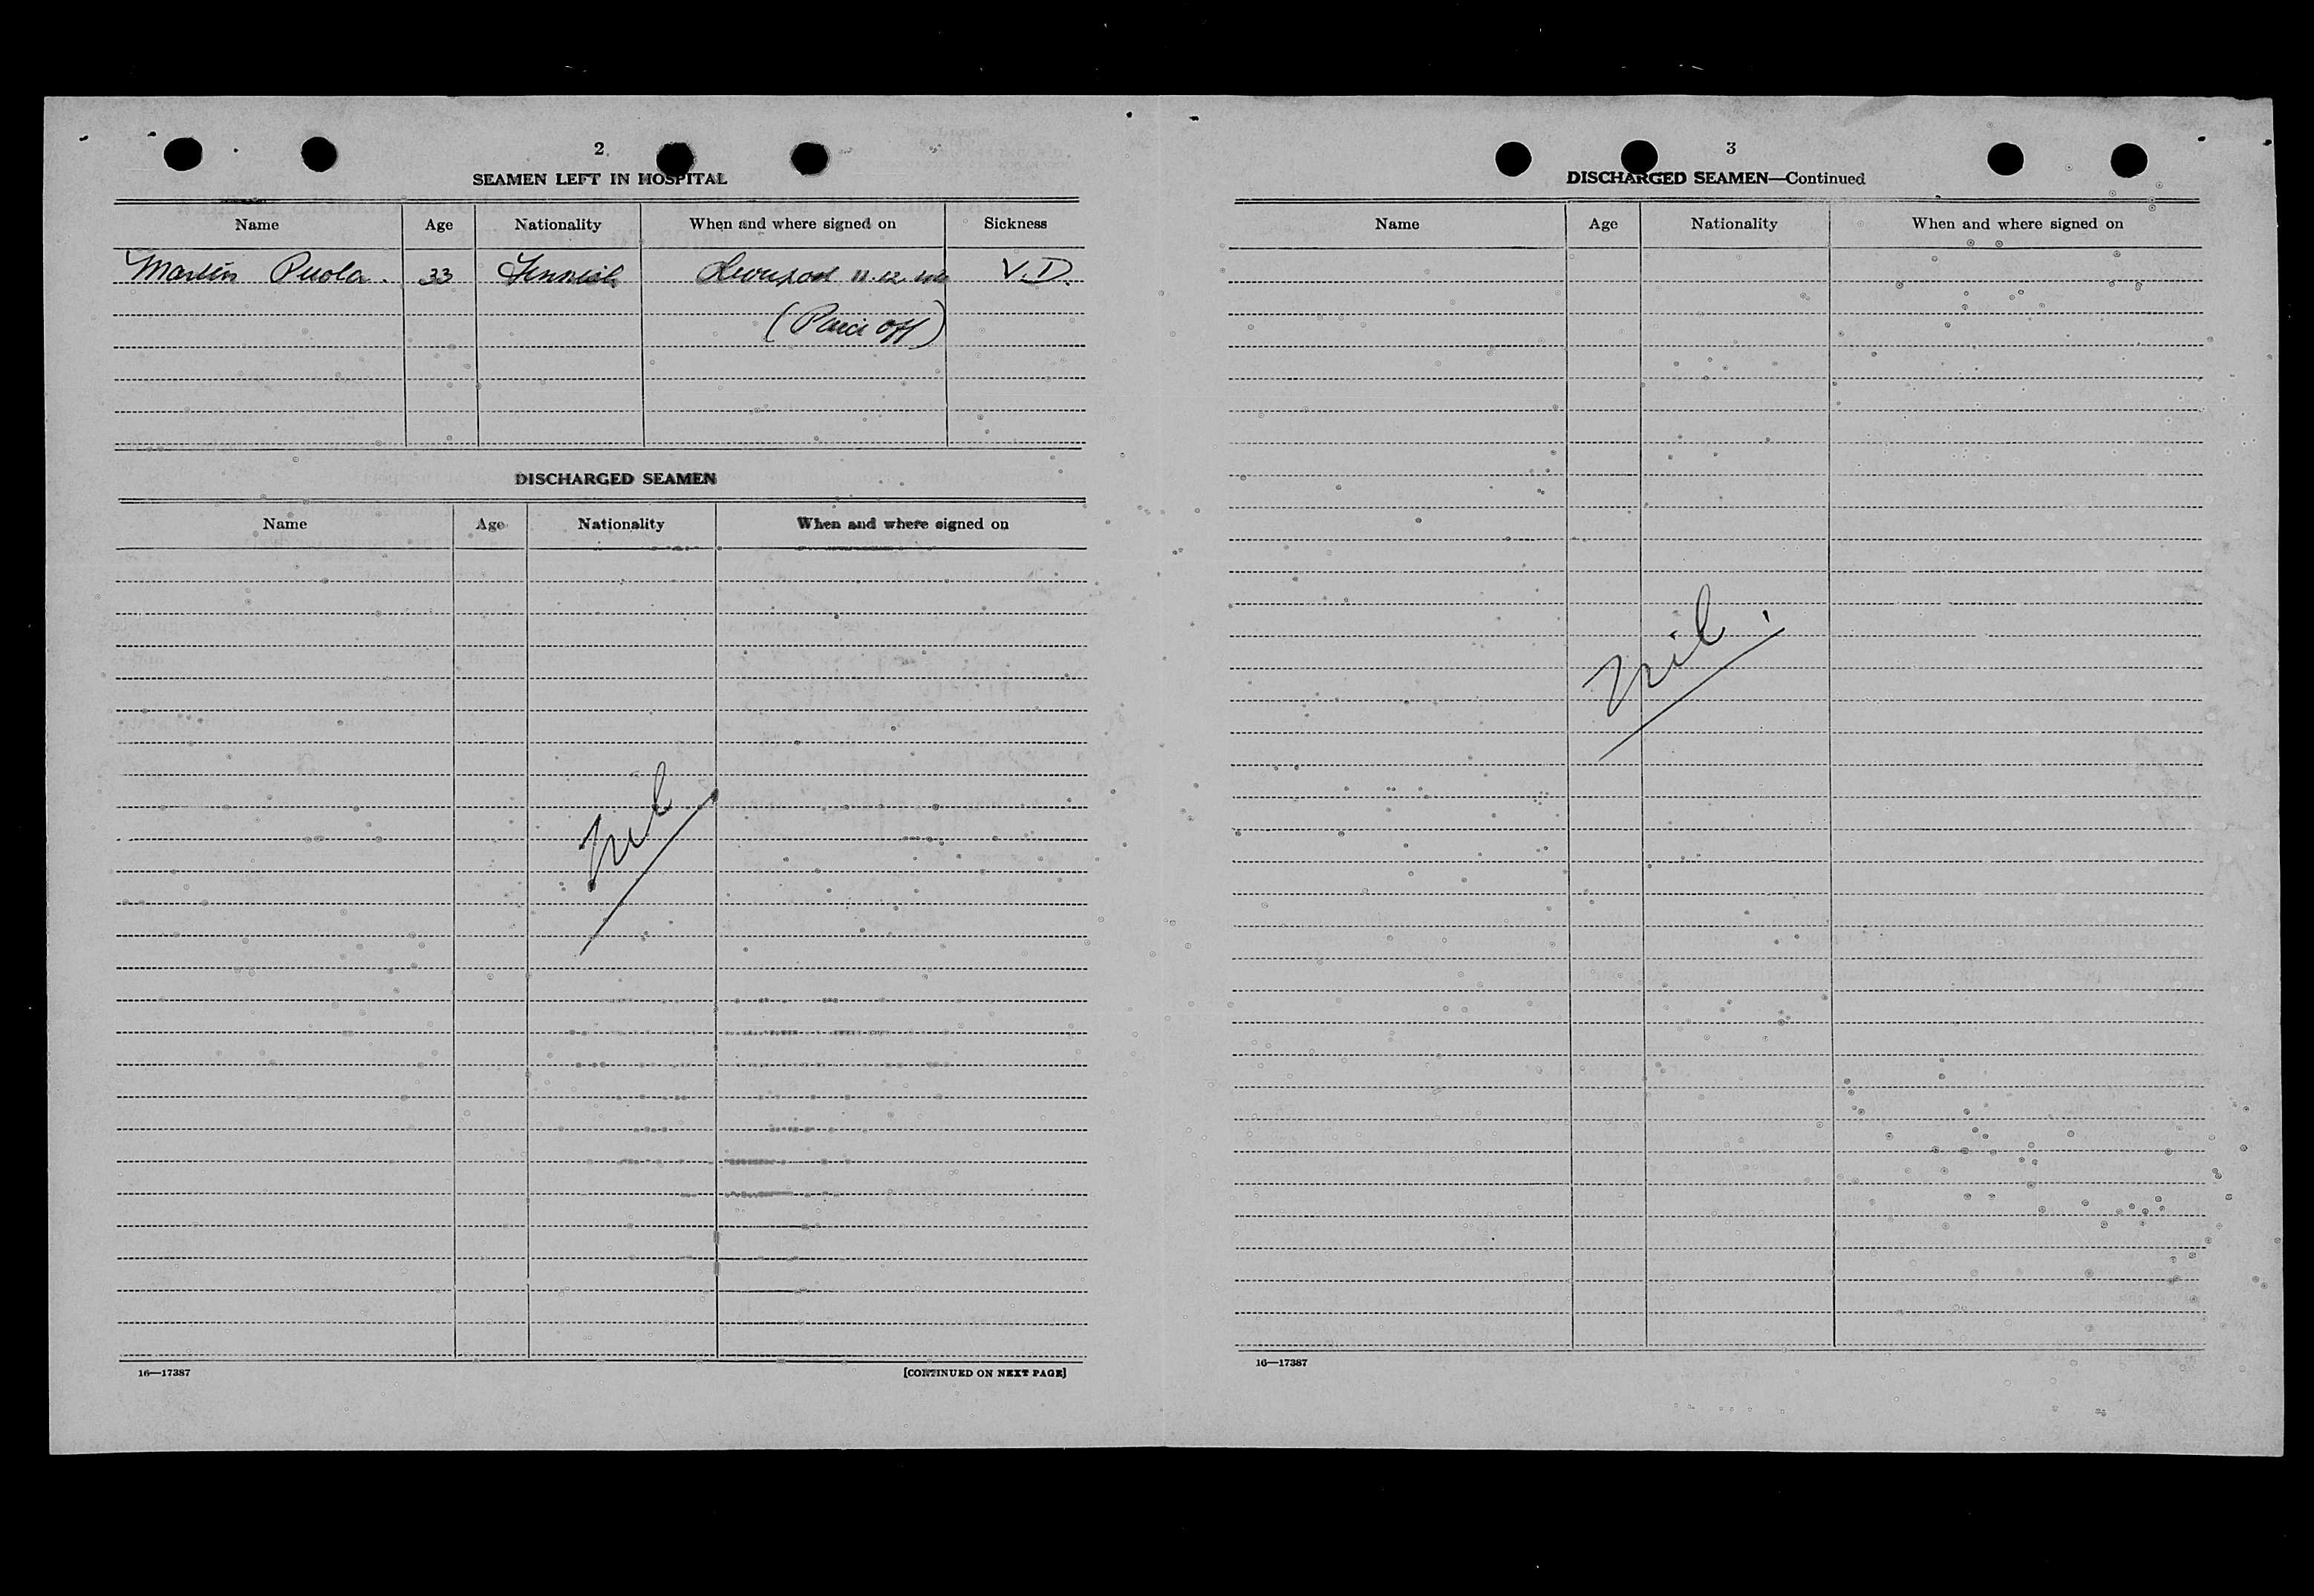 2
SEAMEN LEFT IN HOSPITAL
Name Age Nationality When and where signed on Sickness
Martin Puola. 33 Finnish Liverpool 11.12. V.D.
(Paid off)
DISCHARGED SEAMEN
Name Age Nationality When and where signed on
Nil
16—17387 [CONTINUED ON NEXT PAGE]
3
DISCHARGED SEAMEN—Continued
Name Age Nationality When and where signed on
Nil.
16—17387